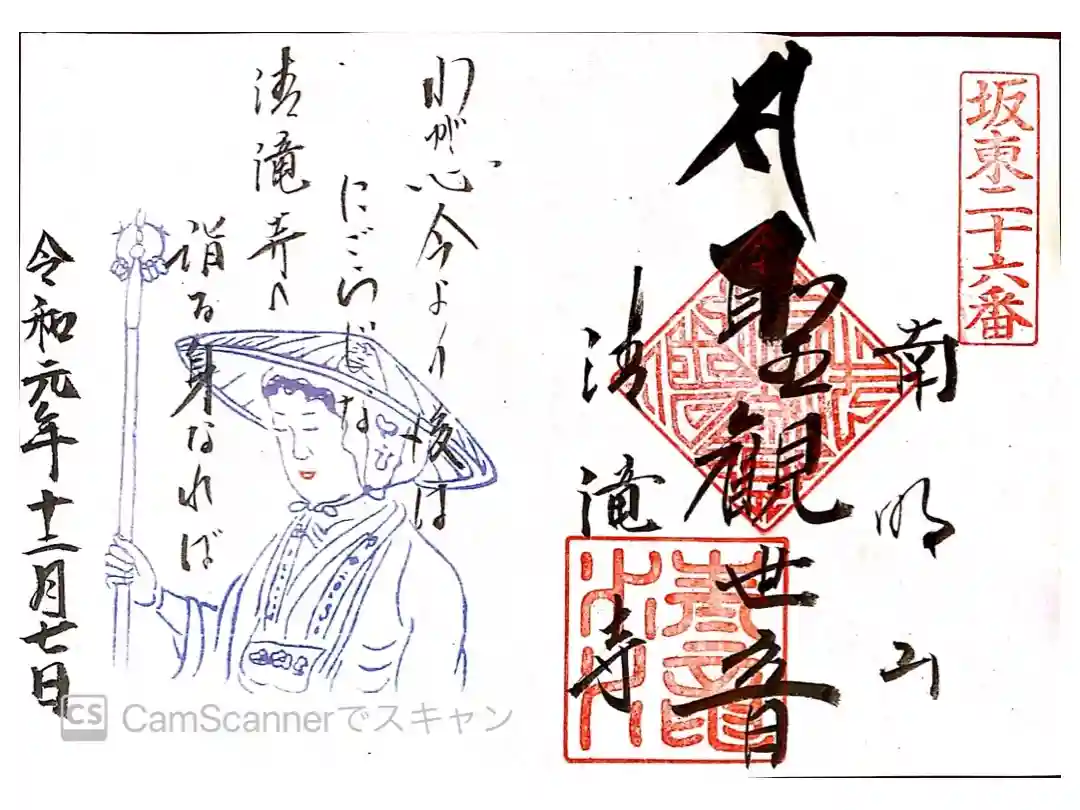 坂東二十六番
南明山
聖観世音
清滝寺
わが心今より後は
にごらじな
清滝寺へ
詣る身なれば
令和元年十二月七日
CS CamScannerでスキャン